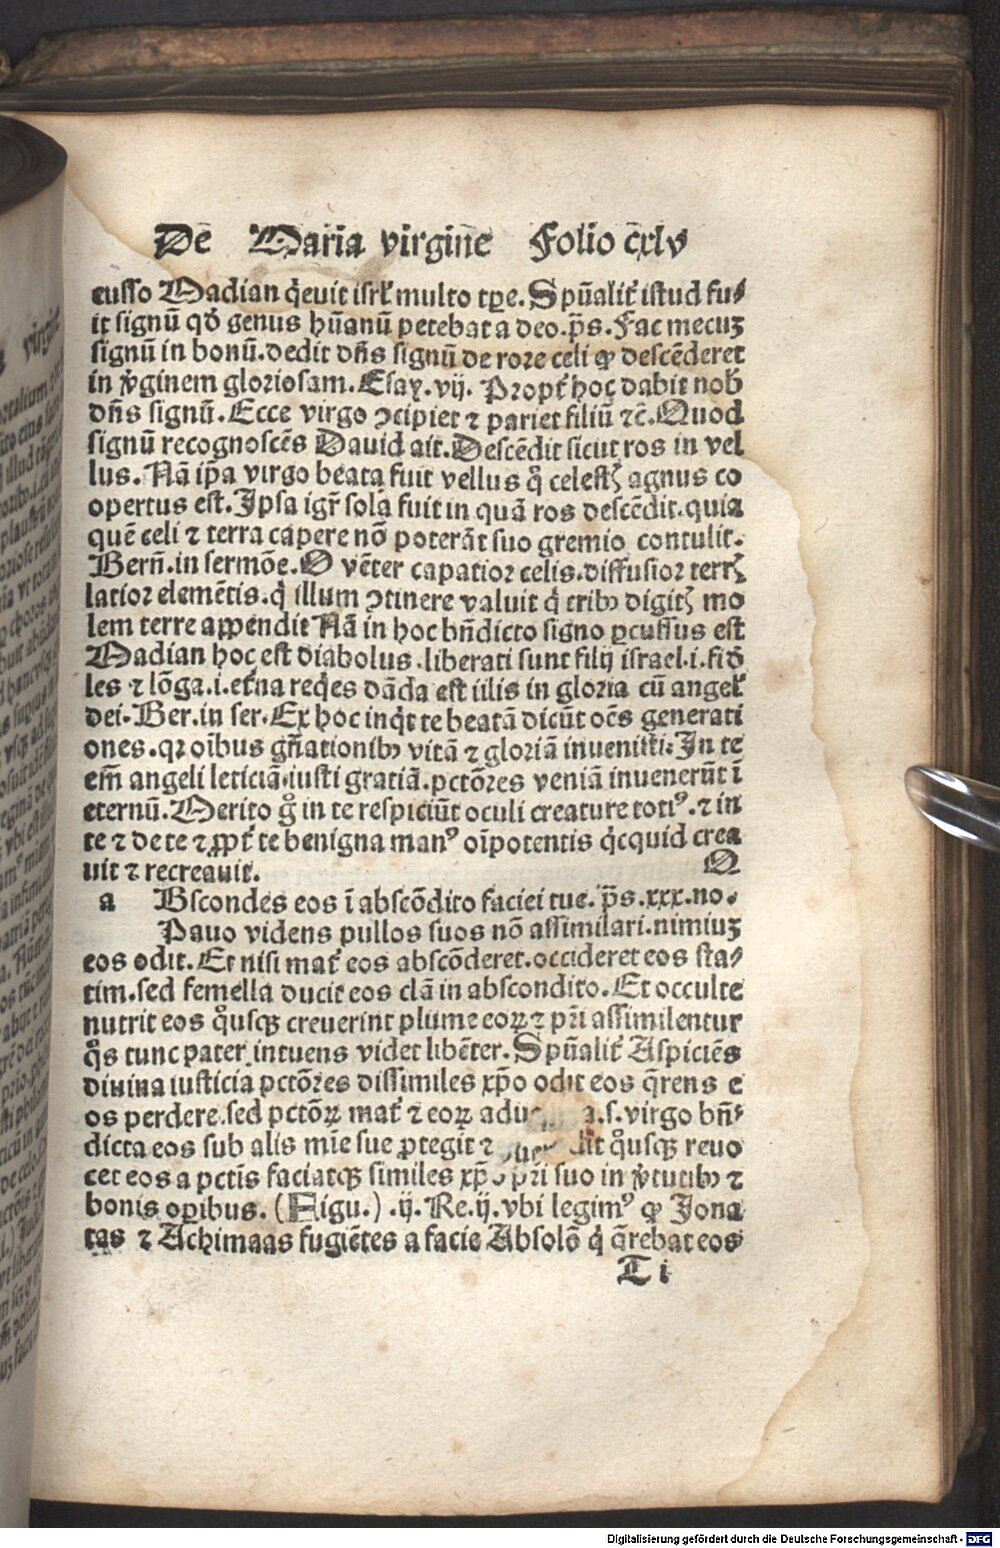 De Maria virgine Folio cxlv
cusso Madian q̇euit isrł multo tꝑe. Spũalit᷑ istud fu⸗
it signũ qđ genus hũanũ petebat a deo. p̃s. Fac mecuʒ
signũ in bonũ. dedit dñs signũ de rore celi ꝙ descẽderet
in v̓ginem gloriosam. Esay. vij. Propt᷑ hoc dabit nob̃
dñs signũ. Ecce virgo ↄcipiet ⁊ pariet filiũ ⁊c̃. Quod
signũ recognoscẽs Dauid ait. Descẽdit sicut ros in vel
lus. Nã ip̃a virgo beata fuit vellus q̊ celestꝭ agnus co
opertus est. Ipsa igr̃ sola fuit in quã ros descẽdit. quia
quẽ celi ⁊ terra capere nõ poterãt suo gremio contulit.
Berñ. in sermõe. O vẽter capatior celis. diffusior terrꝭ
latior elemẽtis. q̇ illum ↄtinere valuit q̇ tribꝰ digitꝭ mo
lem terre appendit Nã in hoc bñdicto signo ꝑcussus est
Madian hoc est diabolus. liberati sunt filij israel. i. fid̃
les ⁊ lõga. i. et᷑na req̇es dãda est illis in gloria cũ angeł
dei. Ber. in ser. Ex hoc inq̇t te beatã dicũt oẽs generati
ones. qꝛ oĩbus gñationibꝰ vitã ⁊ gloriã inuenisti. In te
em̃ angeli leticiã. iusti gratiã. pctõres veniã inuenerũt ĩ
eternũ. Merito g̊ in te respiciũt oculi creature totiꝰ. ⁊ in
te ⁊ de te ⁊ ꝓpt᷑ te benigna manꝰ oĩpotentis q̇cquid crea
uit ⁊ recreauit. Q
a Bscondes eos ĩ abscõdito faciei tue. p̃s. xxx. no.
Pauo videns pullos suos nõ assimilari. nimiuʒ
eos odit. Et nisi mat᷑ eos abscõderet. occideret eos sta⸗
tim. sed femella ducit eos clã in abscondito. Et occulte
nutrit eos q̊usqꝫ creuerint plume eoꝝ ⁊ pr̃i assimilentur
q̊s tunc pater intuens videt libẽter. Spũalit᷑ Aspiciẽs
diuina iusticia pctõres dissimiles xp̃o odit eos q̃rens e
os perdere. sed pctõꝝ mat᷑ ⁊ eoꝝ adu a. s. virgo bñ⸗
dicta eos sub alis mĩe sue ꝓtegit ⁊ q̊usqꝫ reuo
cet eos a pctĩs faciatqꝫ similes xp̃o pr̃i suo in v̓tutibꝰ ⁊
bonis oꝑibus. (Figu.) .ij. Re. ij. vbi legimꝰ ꝙ Jona
tas ⁊ Achimaas fugiẽtes a facie Absolõ q̇ q̃rebat eos
T i
Digitalisierung gefördert durch die Deutsche Forschungsgemeinschaft - DFG